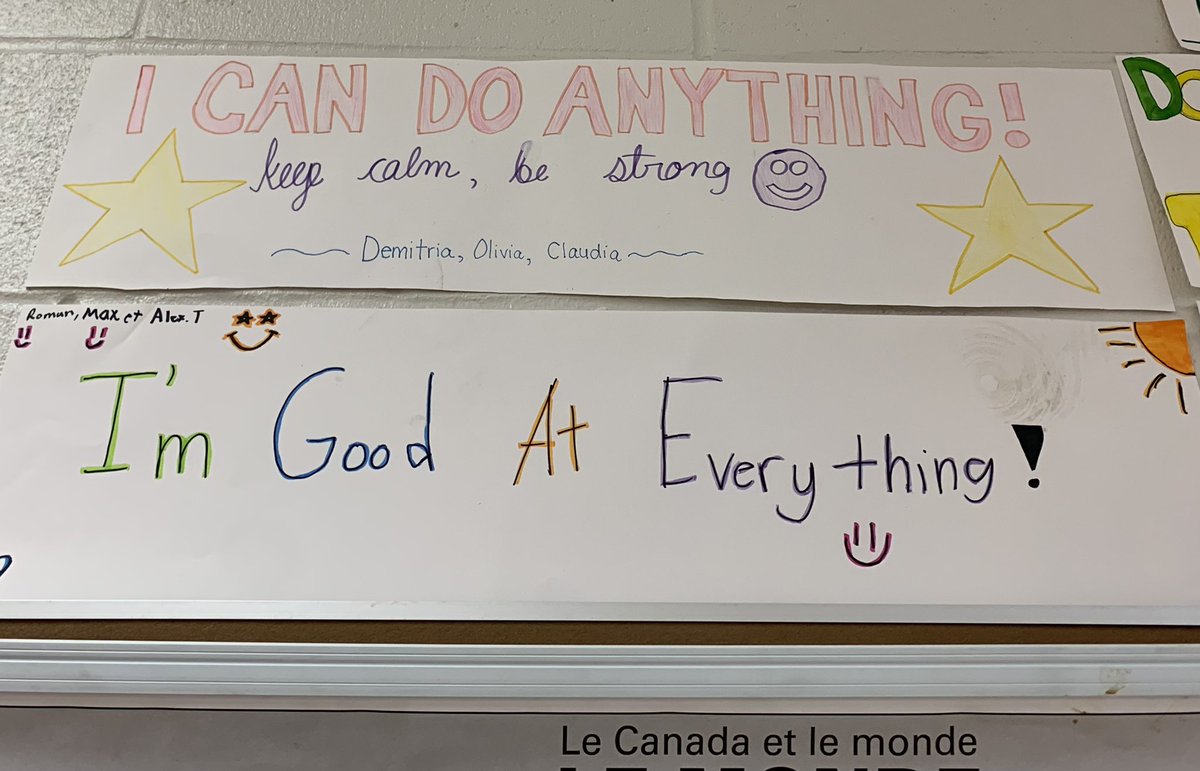 I CAN DO ANYTHING!
keep calm, be strong
Demitria, Olivia, Claudia
Roman, Max et Alex.T
I'm Good At Everything!
Le Canada et le monde
LE MONDE
DO